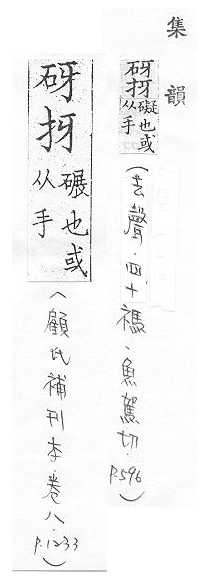 集韻
砑抸礙也或从手(去聲．四十禡．魚駕切．P.596)
砑抸碾也或从手(顧氏補刊本．卷八．P.1233)